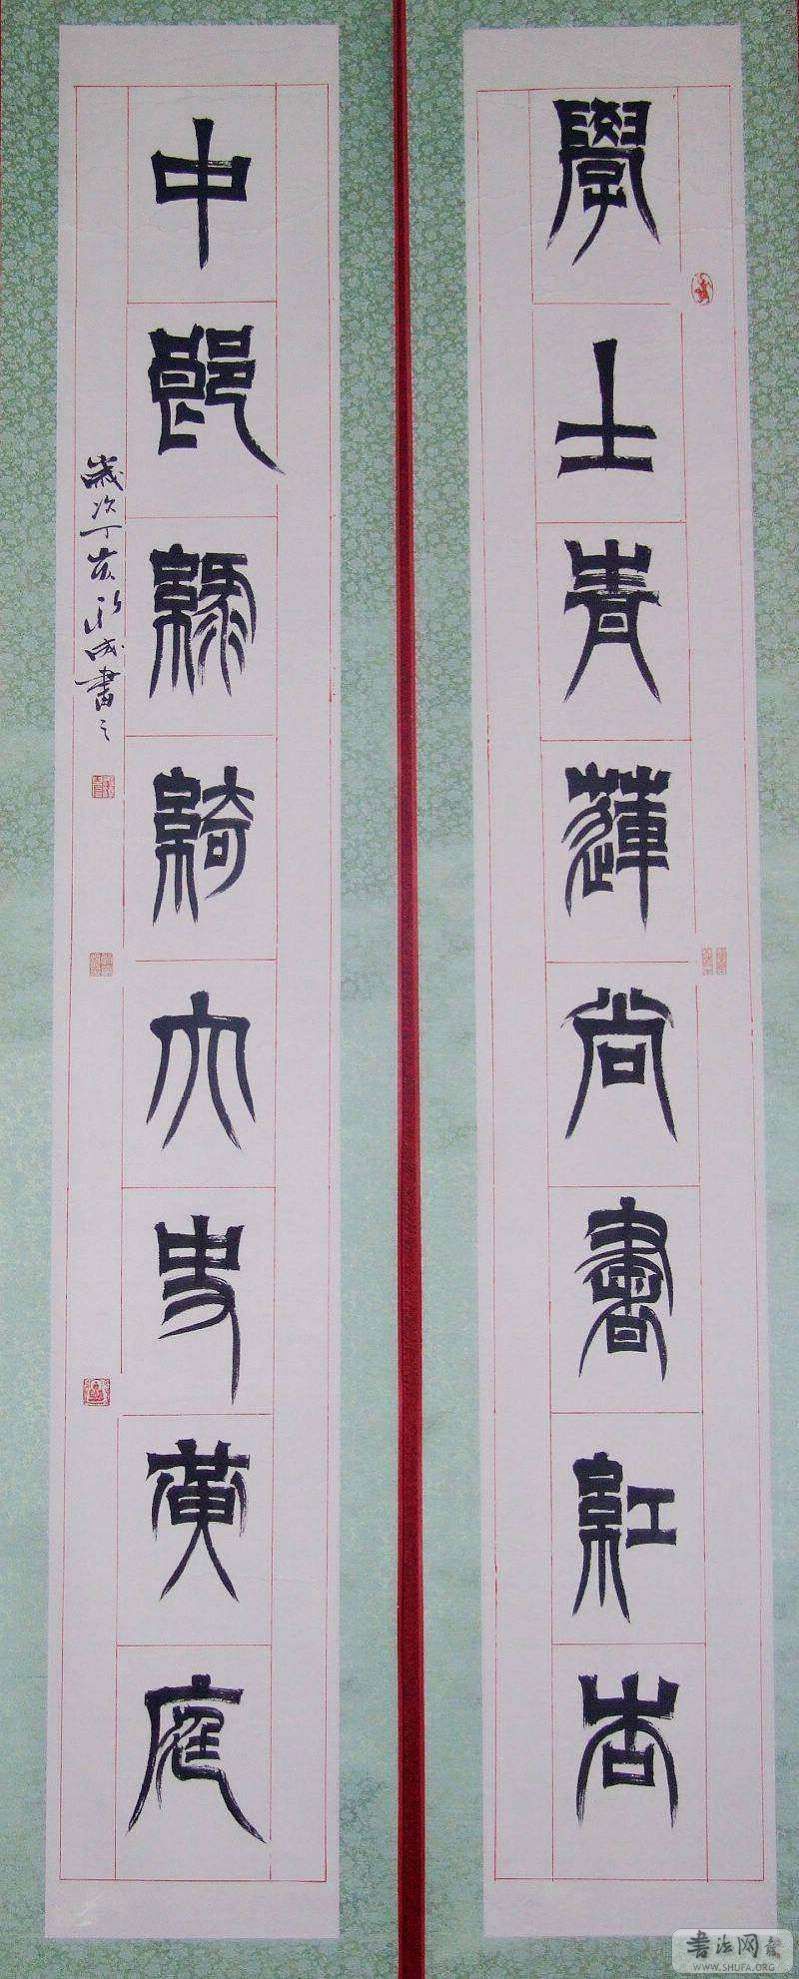 學士青蓮尚書紅杏
中郎綠綺大史黃庭
歲次丁亥 成書之
书法网
WWW.SHUFA.ORG